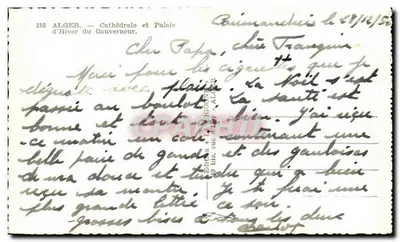 216 ALGER. — Cathédrale et Palais
d'Hiver du Gouverneur.
Birmandreis le 27/12/5
Cher Papa, chère Françoise
Merci pour les cigarettes que je
déguste avec plaisir. La Noël s'est
passée au boulot. La santé est
bonne et tout va bien. J'ai reçu
ce matin un colis contenant une
belle paire de gants et des gauloises
de ma douce et tendre qui a bien
reçu sa montre. Je te ferai une
plus grande lettre ce soir.
Grosses bises à tous les deux